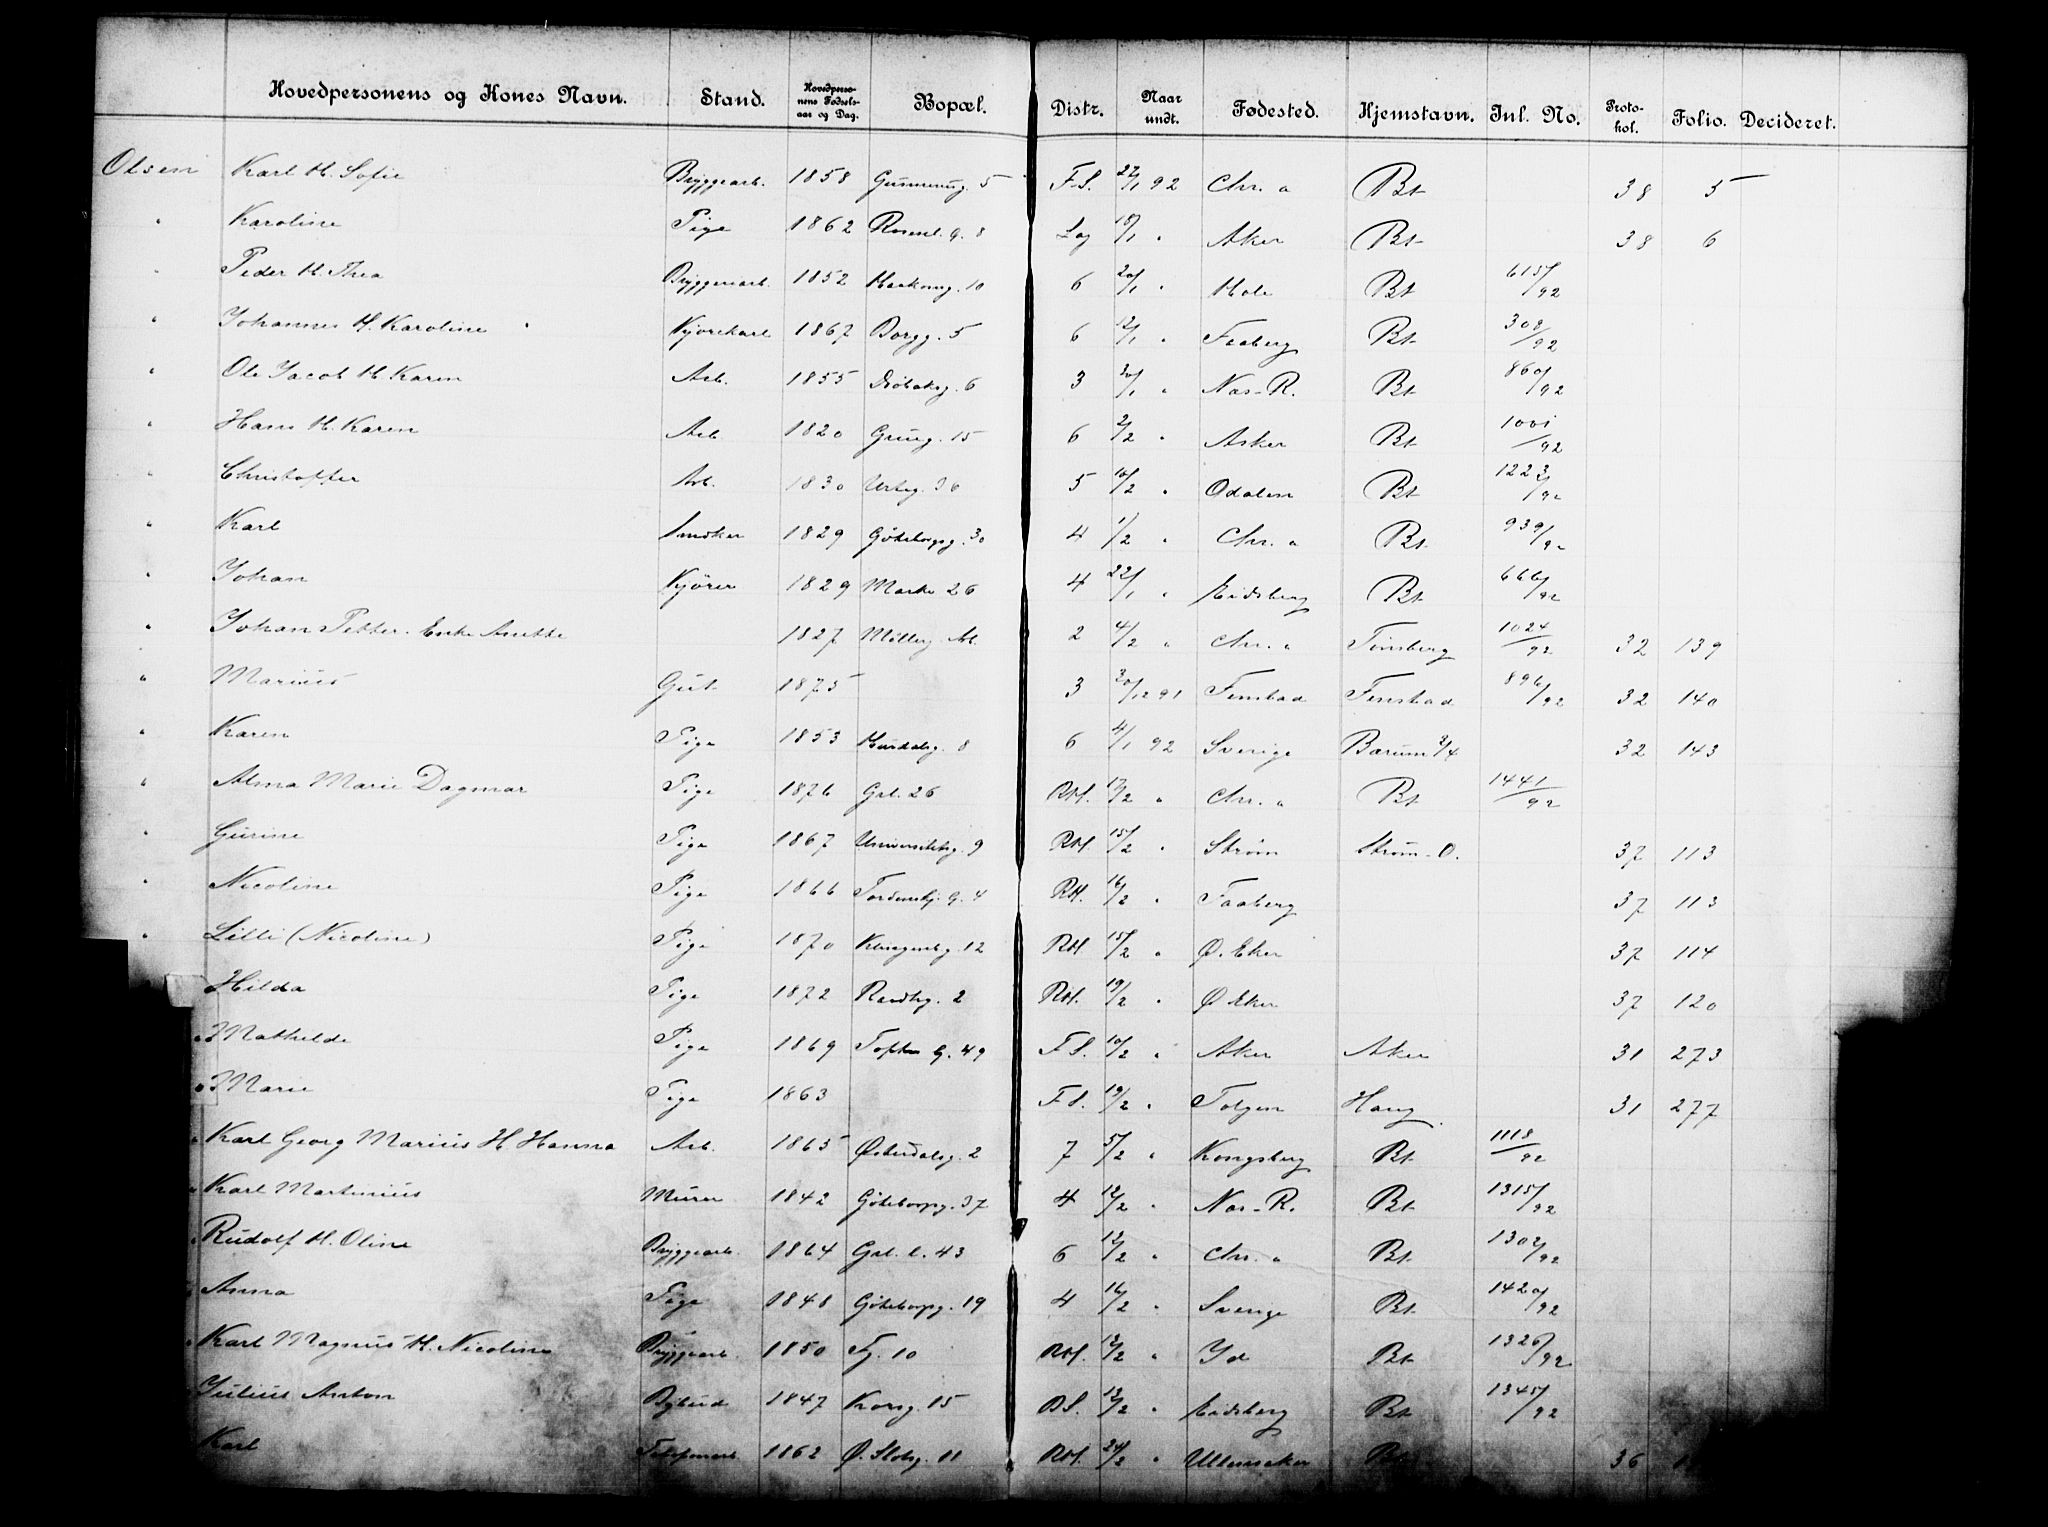 Hovedpersonens og Kones Navn. Stand. Hovedpersonens Fødselsaar og Dag. Bopæl. Distr. Naar undt. Fødested. Hjemstavn. Inl. No. Protokol. Folio. Decideret.
Olsen Karl H. Sofie Bryggearb. 1858 5 F.S. 92 Chr. a Bt 38 5
" Karoline Pige 1862 Rosenl. g. 8 18/1 " Aker Bt 38 6
" Peder H. Thea Bryggeriarb. 1852 10 6 20/1 " Hole Bt 615/92
" Johannes H. Karoline Kjørekarl 1867 Borgg. 5 6 12/1 " Faaberg Bt 308/92
" Ole Jacob H. Karen Arb. 1855 Drøbaksg. 6 3 " Næs-R. Bt 860/92
" Hans H. Karen Arb 1820 Grueg. 15 6 2/2 " Asker Bt 1001/92
" Christoffer Arb. 1830 Urteg. 36 5 10/2 " Odalen Bt 1223/92
" Karl Snedker 1829 Göteborgsg. 30 4 1/2 " Chr. a Bt 939/92
" Johan Kjører 1829 26 4 22/1 " Eidsberg Bt 666/92
" Johan Petter. Enke Anette 1827 Möllerg. 2 4/2 " Chr. a Tønsberg 1024/92 32 139
" Marius Gut 1875 3 30/12 91 Fenstad Fenstad 896/92 32 140
" Karen Pige 1853 Hurdalsg. 8 6 4/1 92 Sverige Bærum 3/4 32 143
" Alma Marie Dagmar Pige 1876 Grl. 26 RH. 17/2 " Chr. a Bt 1441/92
" Gurine Pige 1867 Universitetsg. 9 RH. 15/2 " Strøm Strøm-O. 37 113
" Nicoline Pige 1866 Tordenskj. G. 4 RH. 16/2 " Faaberg 37 113
" Lilli (Nicoline) Pige 1870 12 RH 15/2 " Ø. Eker 37 114
Hilda Pige 1872 2 RH. 19/2 " Ø Eker 37 120
" Mathilde Pige 1869 Toftes G. 49 F.S. 10/2 " Aker Aker 31 273
" Marie Pige 1863 F.S. 19/2 " Tolgen Haug. 31 277
" Karl Georg Marius H. Hanna Arb. 1865 Østerdalsg. 2 7 5/2 " Kongsberg Bt 1118/92
" Karl Martinius Murer 1842 Göteborgsg. 37 4 12/2 " Næs-R. Bt 1315/92
" Rudolf H. Oline Bryggearb. 1864 Grl. l. 43 6 12/2 " Chr. a Bt 1302/92
" Anna Pige 1848 Göteborgsg. 19 4 16/2 " Sverige Bt 1420/92
" Karl Magnus H. Nicoline Bryggearb. 1850 10 RH. 12/2 " Id Bt 1326/92
Julius Anton Bybud 1847 Korsg. 15 13/2 " Eidsberg Bt 1345/92
Karl Telefonarb. 1862 Ø. Slotsg. 11 RH. 24/2 " Ullensaker Bt 36